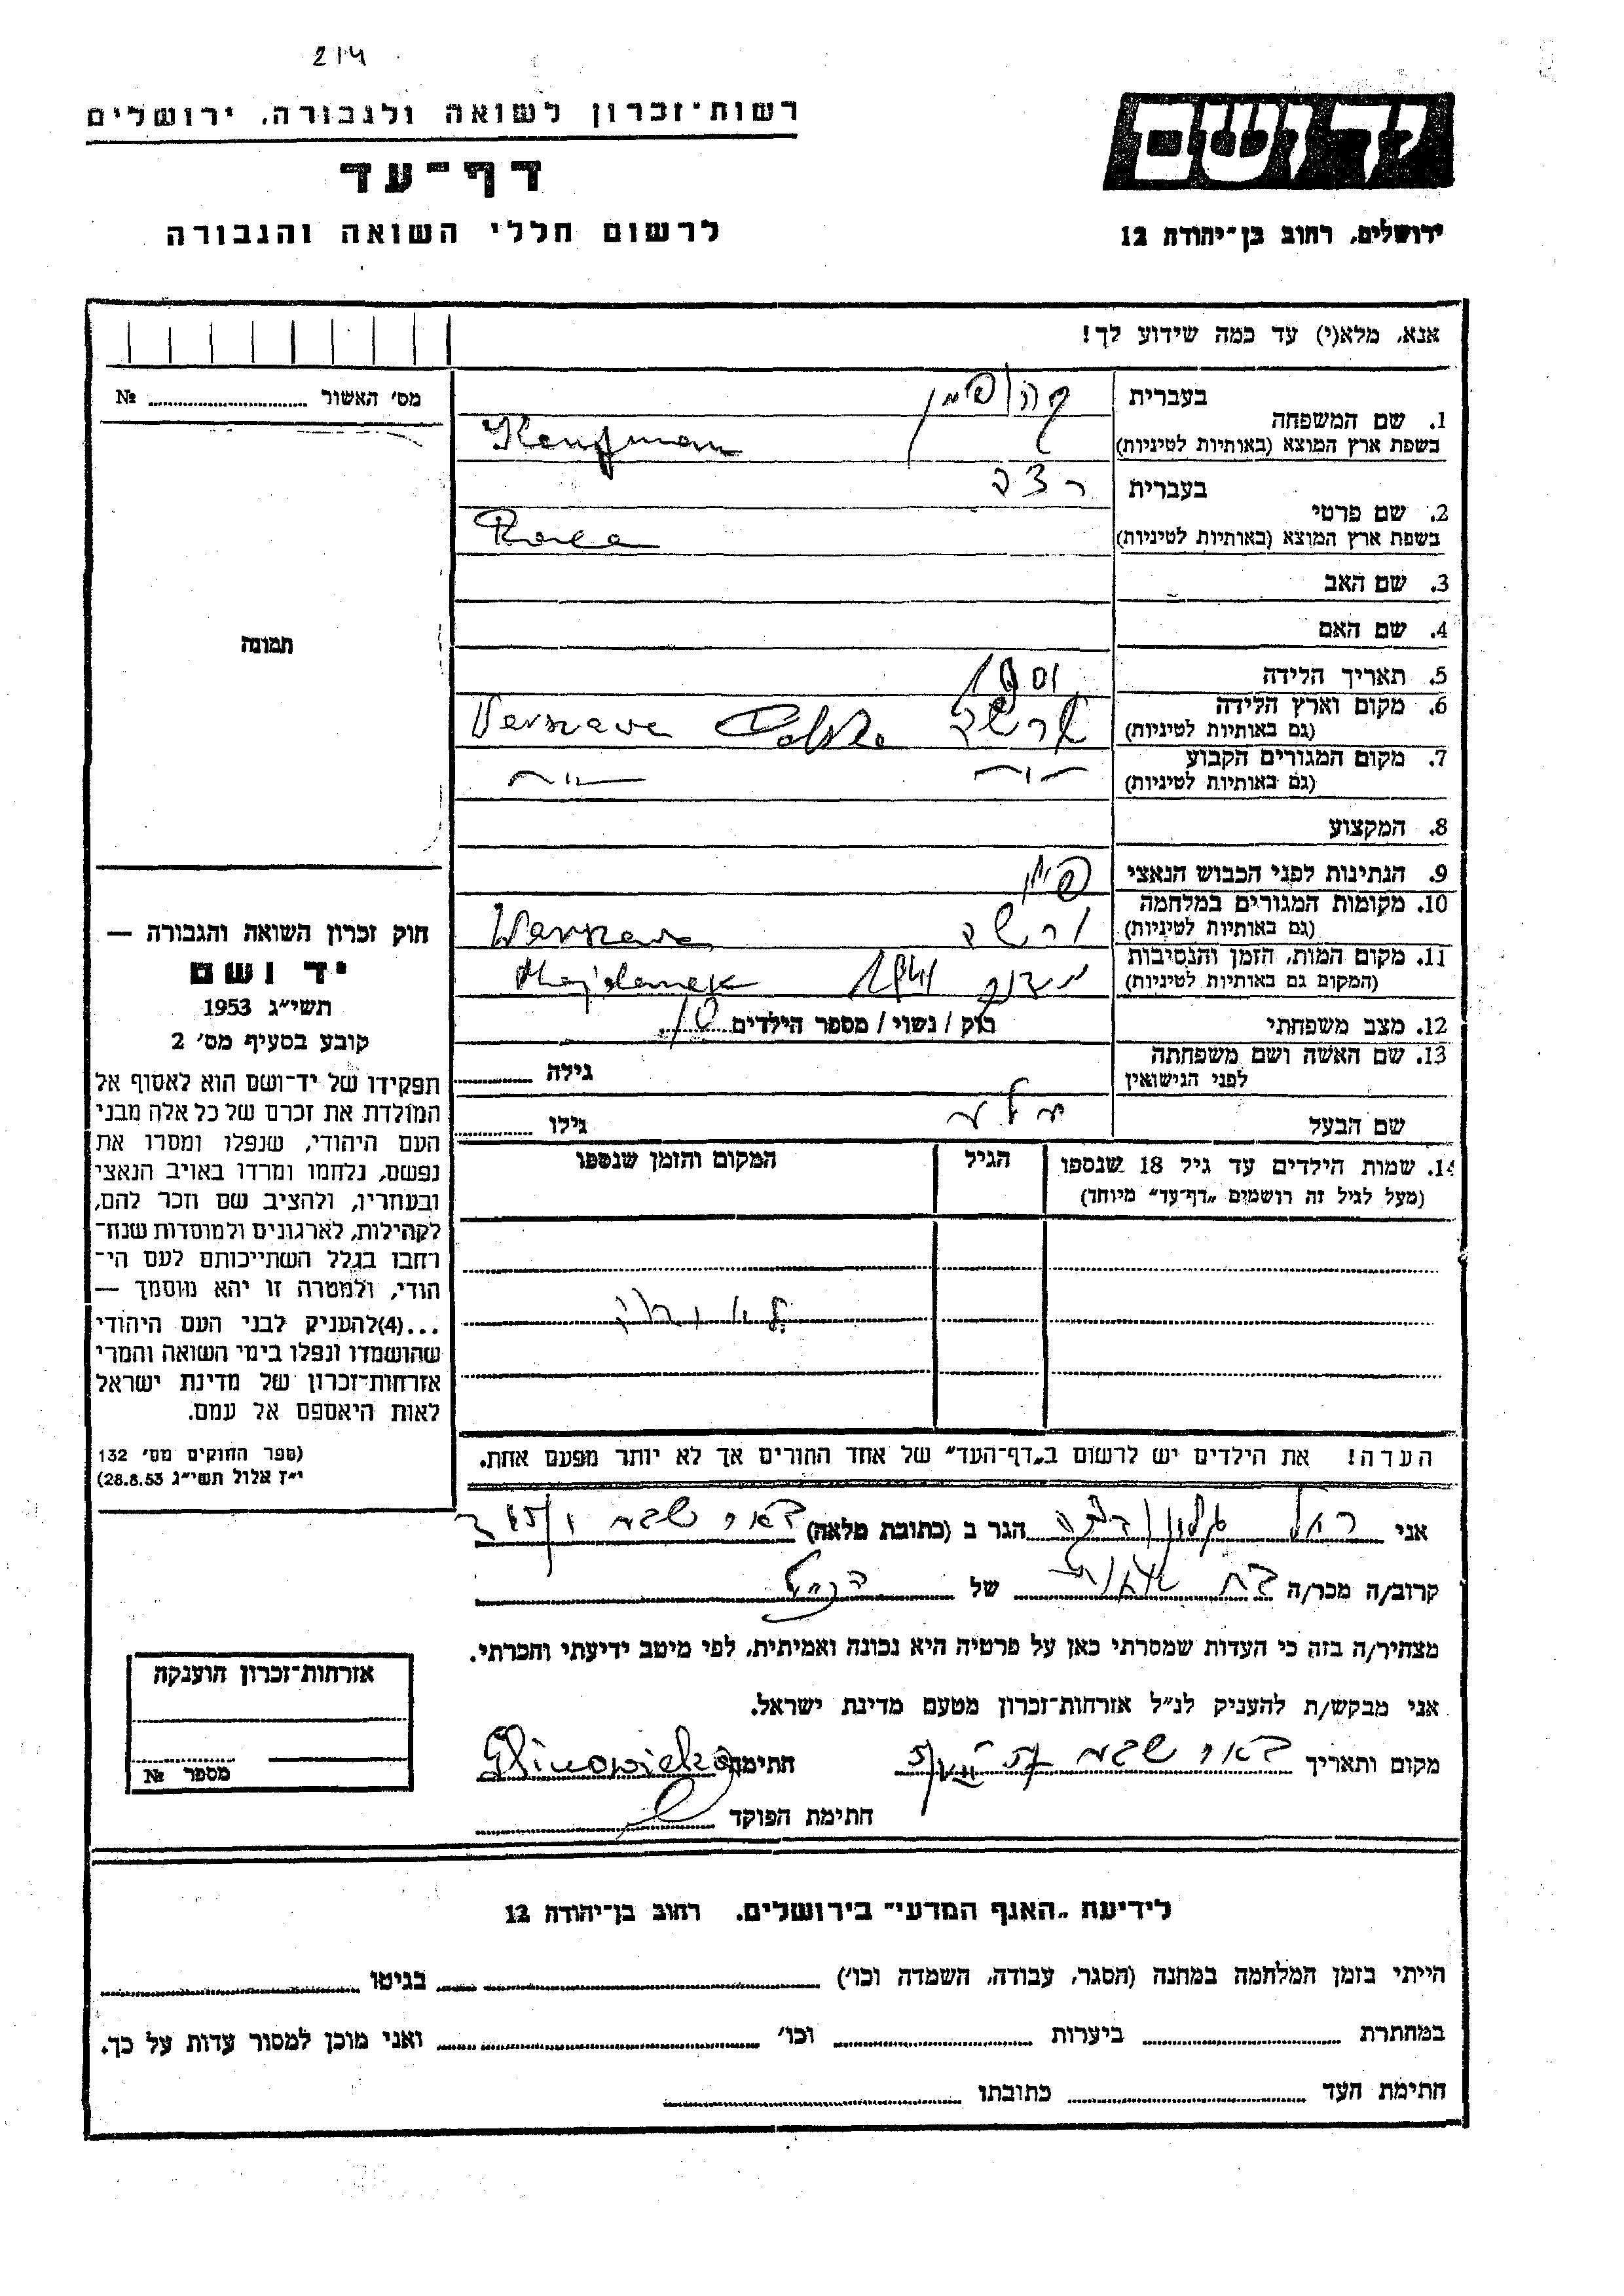 214
רשות־זכרון לשואה ולגבורה, ירושלים
דף־עד
לרשום חללי השואה והגבורה
יד ושם
ירושלים, רחוב בן־יהודה 12
אנא, מלא(י) עד כמה שידוע לך!
מס׳ האשור № 
בעברית
1. שם המשפחה
בשפת ארץ המוצא (באותיות לטיניות) Kaufman
בעברית
2. שם פרטי
בשפת ארץ המוצא (באותיות לטיניות)
3. שם האב
4. שם האם
5. תאריך הלידה 1901
6. מקום וארץ הלידה ורשה Polska Varszava
(גם באותיות לטיניות)
7. מקום המגורים הקבוע
(גם באותיות לטיניות)
8. המקצוע
9. הנתינות לפני הכבוש הנאצי
10. מקומות המגורים במלחמה ורשה Warszava
(גם באותיות לטיניות)
11. מקום המות, הזמן והנסיבות Majdanek
(המקום גם באותיות לטיניות)
12. מצב משפחתי רוק / נשוי / מספר הילדים
13. שם האשה ושם משפחתה גילה
לפני הנישואין
שם הבעל גילו
14. שמות הילדים עד גיל 18 שנספו הגיל המקום והזמן שנספו
(מעל לגיל זה רושמים „דף־עד״ מיוחד)
הערה! את הילדים יש לרשום ב„דף־העד״ של אחד ההורים אך לא יותר מפעם אחת.
תמונה
חוק זכרון השואה והגבורה —
יד ושם
תשי״ג 1953
קובע בסעיף מס׳ 2
תפקידו של יד־ושם הוא לאסוף אל
המולדת את זכרם של כל אלה מבני
העם היהודי, שנפלו ומסרו את
נפשם, נלחמו ומרדו באויב הנאצי
ובעוזריו, ולהציב שם וזכר להם,
לקהילות, לארגונים ולמוסדות שנח־
רחבו בגלל השתייכותם לעם הי־
הודי, ולמטרה זו יהא מוסמך —
...(4)להעניק לבני העם היהודי
שהושמדו ונפלו בימי השואה והמרי
אזרחות־זכרון של מדינת ישראל
לאות היאספם אל עמם.
(ספר החוקים מס׳ 132
י״ז אלול תשי״ג 28.8.53)
אני הגר ב (כתובת מלאה) באר שבע
קרוב/ה מכר/ה של
מצהיר/ה בזה כי העדות שמסרתי כאן על פרטיה היא נכונה ואמיתית, לפי מיטב ידיעתי והכרתי.
אני מבקש/ת להעניק לנ״ל אזרחות־זכרון מטעם מדינת ישראל.
מקום ותאריך באר שבע חתימה
חתימת הפוקד
אזרחות־זכרון הוענקה
מספר №
לידיעת „האגף המדעי״ בירושלים, רחוב בן־יהודה 12
הייתי בזמן המלחמה במחנה (הסגר, עבודה, השמדה וכו׳) בגיטו
במחתרת ביערות וכו׳ ואני מוכן למסור עדות על כך.
חתימת העד כתובתו